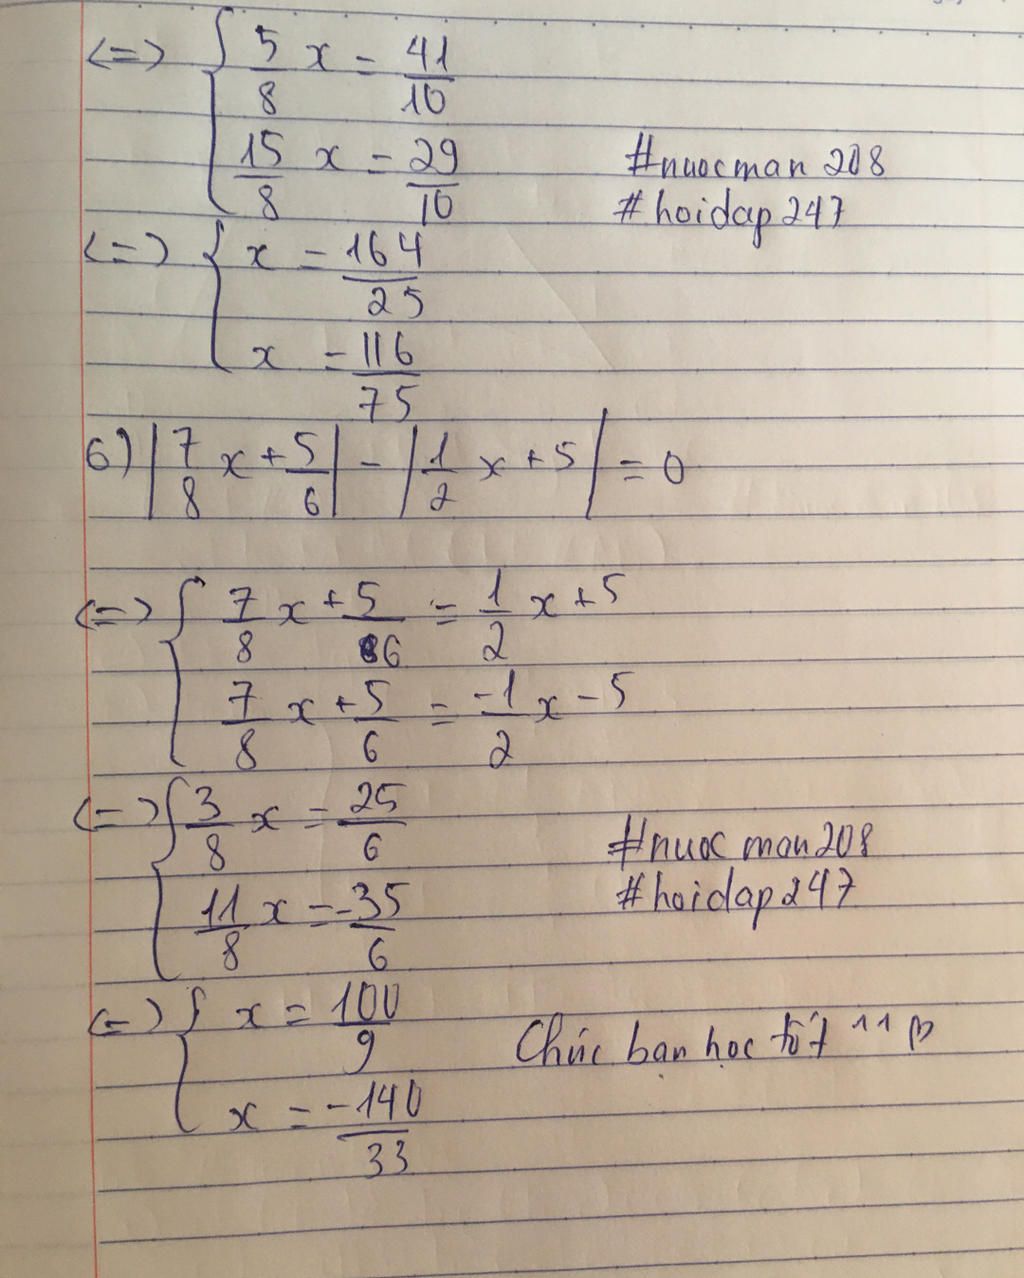 <=> { 5/8 x = 41/10
15/8 x = 29/10
#nuocman208
#hoidap247
<=> { x = 164/25
x = 116/75
6) |7/8 x + 5/6| - |1/2 x + 5| = 0
<=> { 7/8 x + 5/6 = 1/2 x + 5
7/8 x + 5/6 = -1/2 x - 5
<=> { 3/8 x = 25/6
11/8 x = -35/6
#nuocman208
#hoidap247
<=> { x = 100/9
x = -140/33
Chúc bạn học tốt ^^